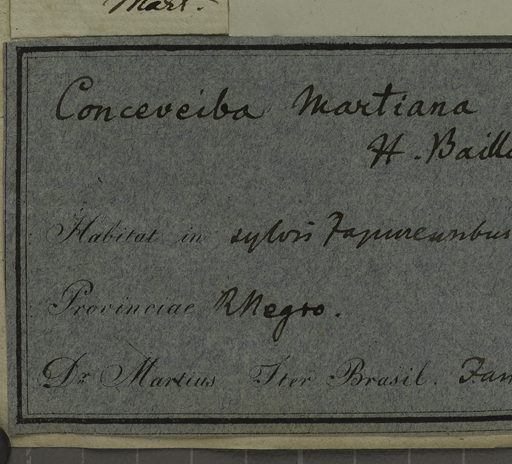 Mart.
Conceveiba Martiana
H. Baill
Habitat in sylvis Japurensibus
Provinciae R Negro.
Dr. Martius Iter Brasil. Jan